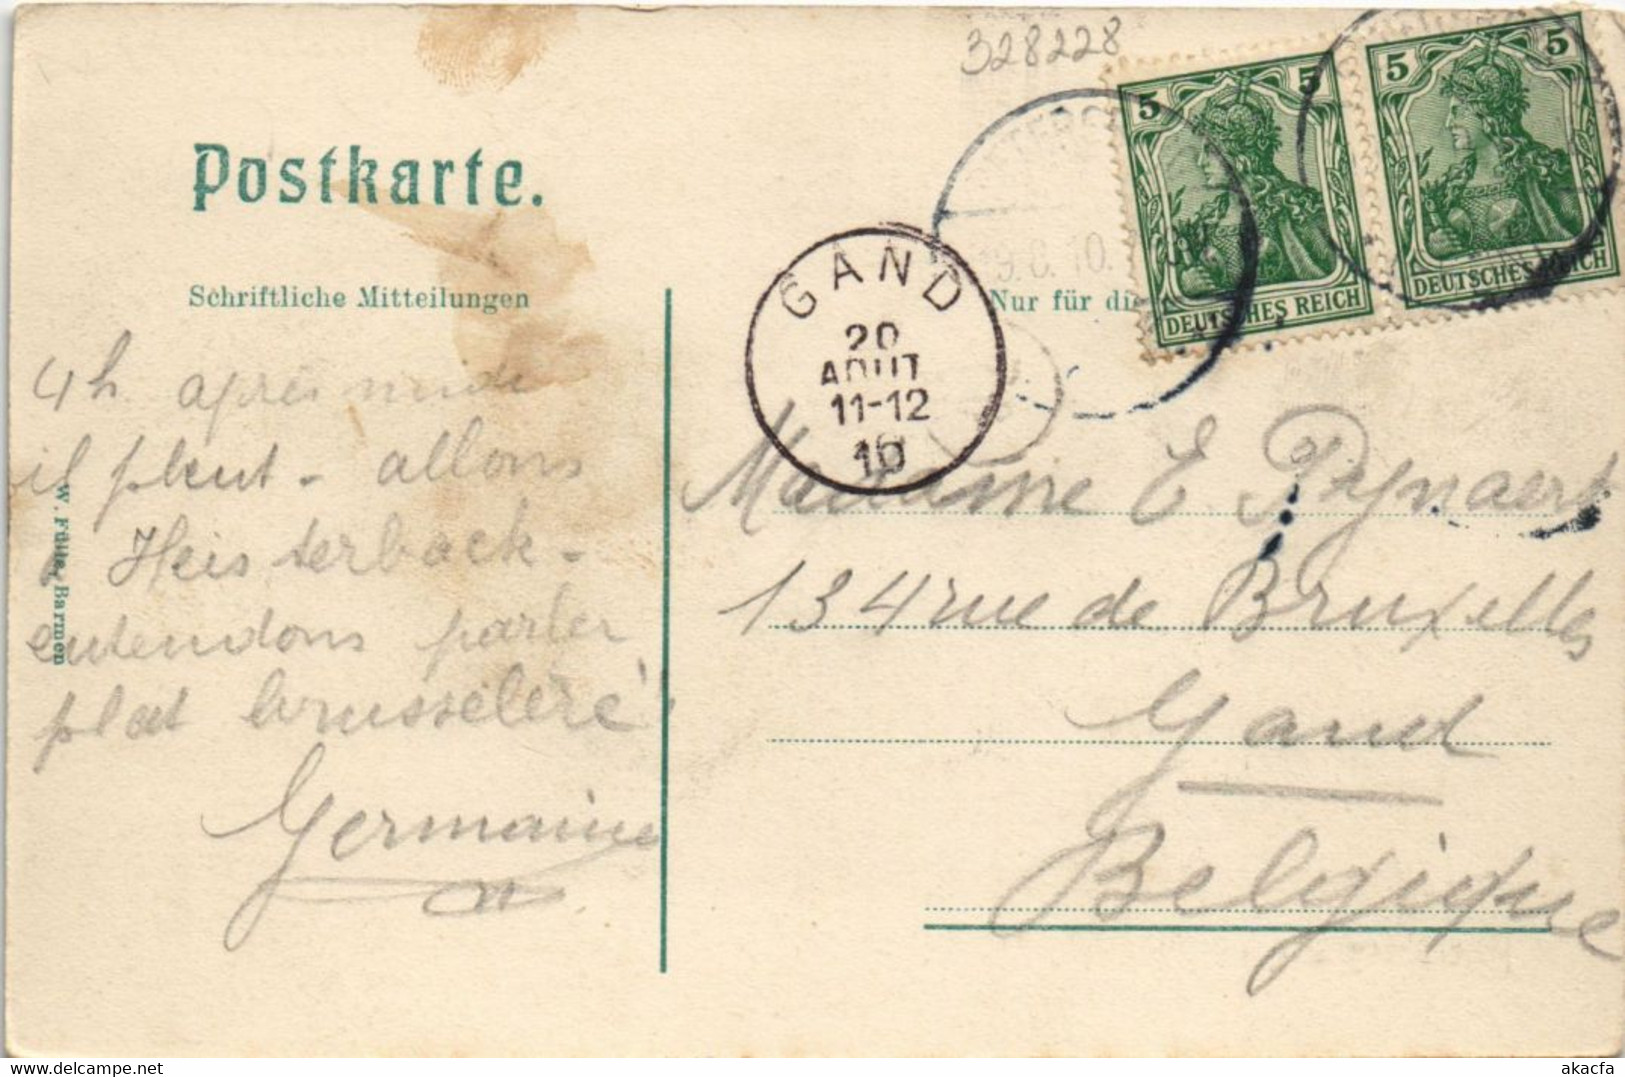 328228
Postkarte.
Schriftliche Mitteilungen
Nur für di
5
5
DEUTSCHES REICH
5
5
DEUTSCHES REICH
GAND
20
AOUT
11-12
10
4h après midi
il pleut - allons
à Heisterback -
entendons parler
plat brusseleré
Germaine
Madame E. Pynaert
134 rue de Bruxelles
Gand
Belgique
W. Fülle, Barmen
Bidding on akacfa